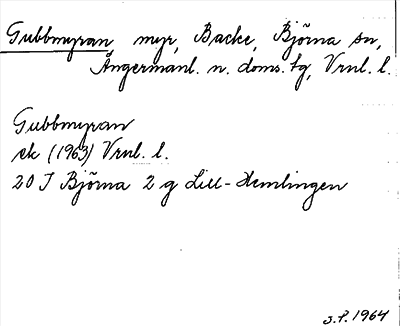 Gubbmyran, myr, Backe, Björna sn,
Ångermanl. n. doms. tg, Vrnl. l.
Gubbmyran
ek (1963) Vrnl. l.
20 J Björna 2 g Lill-Hemlingen
S.P. 1964